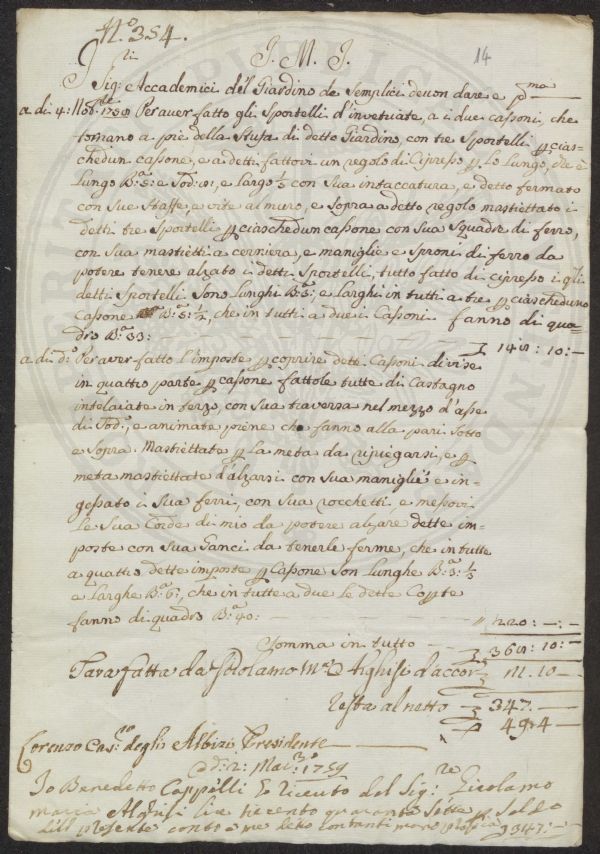 N.º 354.
J. M. J. 14
Gli Sig: Accademici del Giardino de Semplici devon dare e p.ma
a di 4: Nov.bre Per aver fatto gli Sportelli d'invetriate, a i due cassoni, che
tornano a piè della Stufa di detto Giardino, con tre Sportelli p cias-
chedun cassone, e a detti fattovi un regolo di Cipresso p Lo Lungo, che è
Lungo B.a 5: e Sod: e Largo 1/3 con Sua intaccatura, e detto fermato
con Sue Staffe, e vite al muro, e Sopra a detto regolo mastiettato i
detti tre Sportelli p ciaschedun cassone con Sua Squadre di ferro,
con Sua mastietti a cerniera, e maniglie e Sproni di ferro da
potere tenere alzato i detti Sportelli, tutto fatto di cipresso i qli
detti Sportelli Sono Lunghi B.a 3: e Larghi in tutti a tre p ciascheduno
Cassone B.a 5: 1/2, che in tutti a due i Cassoni fanno di qua-
dro B.a 33:
a di d.º Per aver fatto l'imposte p coprire dette Cassoni divise
in quattro parte p casone fattole tutte di Castagno
intelaiate in terzo, con sua traversa nel mezzo d'asse
di Sod:, e animate piene che fanno alla pari Sotto
e Sopra. Mastiettate p La meta da ripiegarsi, e p
meta mastiettate d'alzarsi con Sua maniglie e in-
gessato i Sua ferri, con Sua rocchetti, e messovi
Le Sua Corde di mio da potere alzare dette im-
poste con Sua Ganci da tenerle ferme, che in tutte
a quattro dette imposte p Cassone Son Lunghe B.a 3: 1/3
e Larghe B.a 6:, che in tutte a due Le dette Cop.te
fanno di quadro B.a 40: 220: -: -
Somma in tutto 10: -
Tara fatta da Girolamo M.a Alghisi d'accor. 10 -
resta al netto 347: -
Lorenzo degli Albizi Presidente
A di 2: Mar:º 1759
Io Benedetto Cappelli ò riceuto dal Sig:re Girolamo
Maria Alghisi lire trecento quaranta Sette p Saldo
dell presente conto a me detto contanti mano propria 347: -